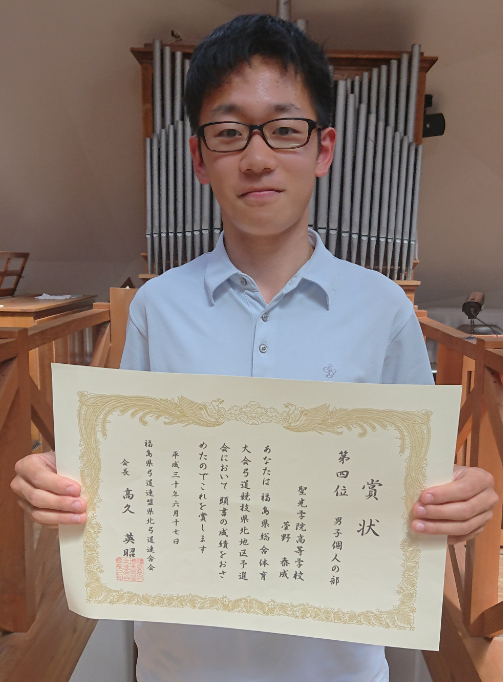 賞状
第四位　男子個人の部
聖光学院高等学校
菅野　泰成
あなたは　福島県総合体育
大会弓道競技県北地区予選
会において　頭書の成績をおさ
めたのでこれを賞します
平成三十年六月十七日
福島県弓道連盟県北弓道連合会
会長　高久　英昭